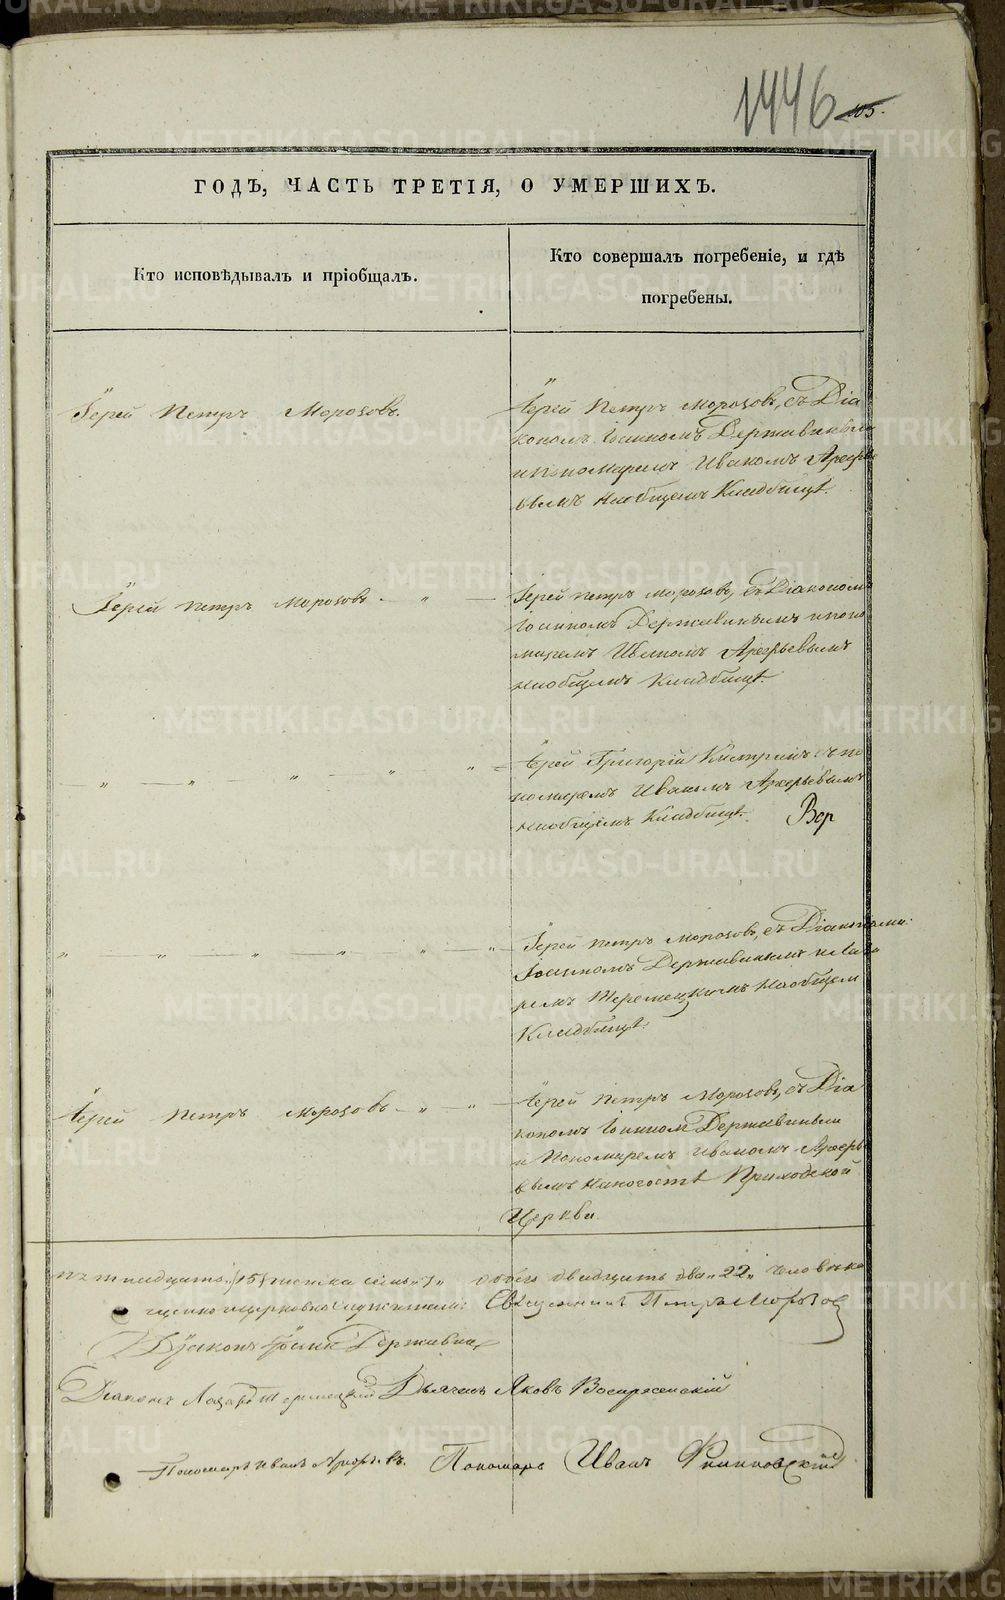 1446 105.
ГОДЪ, ЧАСТЬ ТРЕТІЯ, О УМЕРШИХЪ.
Кто исповѣдывалъ и пріобщалъ.
Кто совершалъ погребеніе, и гдѣ
погребены.
Іерей Петръ Морозовъ.
Іерей Петръ Морозовъ, съ Діа
кономъ Іоанномъ Державинымъ
и пономаремъ Иваномъ Арефье
вымъ на общемъ Кладбищѣ.
Іерей Петръ Морозовъ
Іерей Петръ Морозовъ, съ Діакономъ
Іоанномъ Державинымъ и поно
маремъ Иваномъ Арефьевымъ
на общемъ Кладбищѣ.
Іерей Григорій съ по
номаремъ Иваномъ Арефьевымъ
на общемъ Кладбищѣ. Вер
Іерей Петръ Морозовъ, съ Діаконами:
Іоанномъ Державинымъ и Лаза
ремъ на общемъ
Кладбищѣ.
Іерей Петръ Морозовъ
Іерей Петръ Морозовъ, съ Діа
кономъ Іоанномъ Державинымъ
и Пономаремъ Иваномъ Арефье
вымъ на погостѣ Приходской
Церкви.
15 женска семь „7„ обоего двадцать два „22„ человѣка
Священникъ Петръ Морозовъ
Діаконъ Іоаннъ Державинъ
Діаконъ Лазарь Дьячекъ Яковъ Воскресенскій
Пономарь Иванъ Арефьевъ. Пономарь Иванъ Филиповскій
METRIKI.GASO-URAL.RU